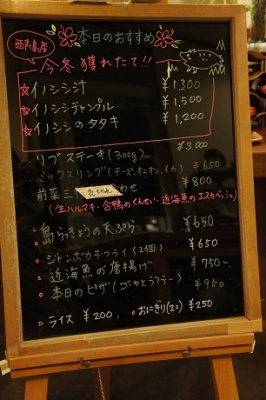 本日のおすすめ
西表島産
今冬獲れたて!!
☆イノシシ汁 ¥1,300
☆イノシシチャンプル ¥1,500
☆イノシシのタタキ ¥1,200
リブステーキ(300g) ¥3,000
リング(チーズ,オニオン,イカ) ¥650
前菜三 わせ ¥800
(生ハルマキ・合鴨のくんせい・近海魚のエスカベッシュ)
・島らっきょうの天ぷら ¥650
・ジャンボカキフライ(2個) ¥650
・近海魚の唐揚げ ¥750~
・本日のピザ(ゴーヤとラフテー) ¥950
・ライス ¥200 ・おにぎり(2コ) ¥250